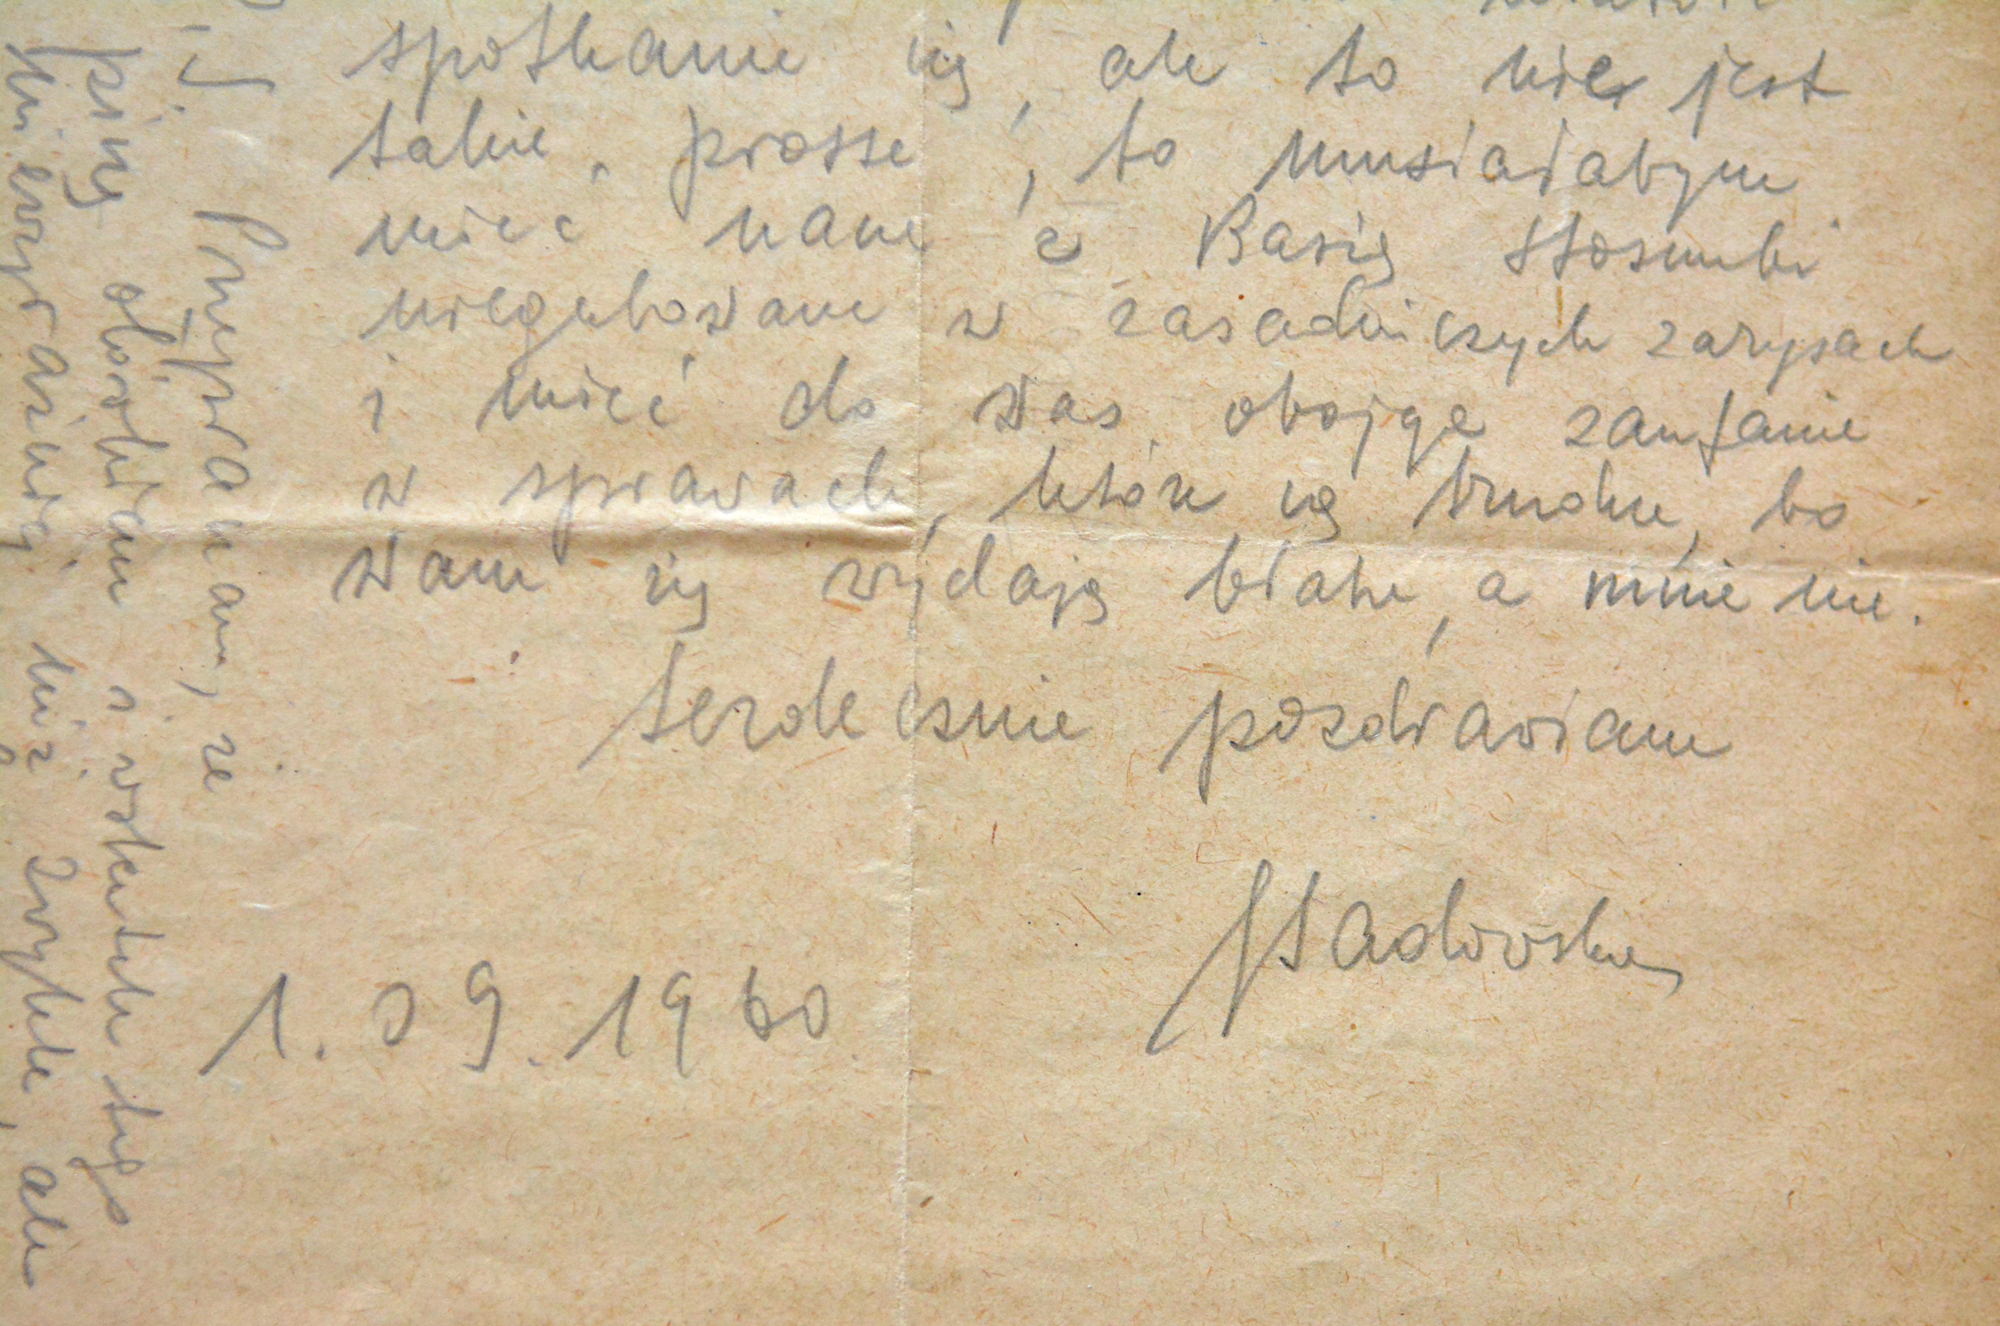 spotkanie się, ale to nie jest
takie proste, to musiałabym
mieć nam z Basią stosunki
uregulowane w zasadniczych zarysach
i mieć do was obojga zaufanie
w sprawach, które są trudne, bo
wam się wydają błahe, a mnie nie.
Serdecznie pozdrawiam
1.09.1960
Przepraszam, że
piszę ołówkiem i wskutek tego
niewyraźniej niż zwykle, ale